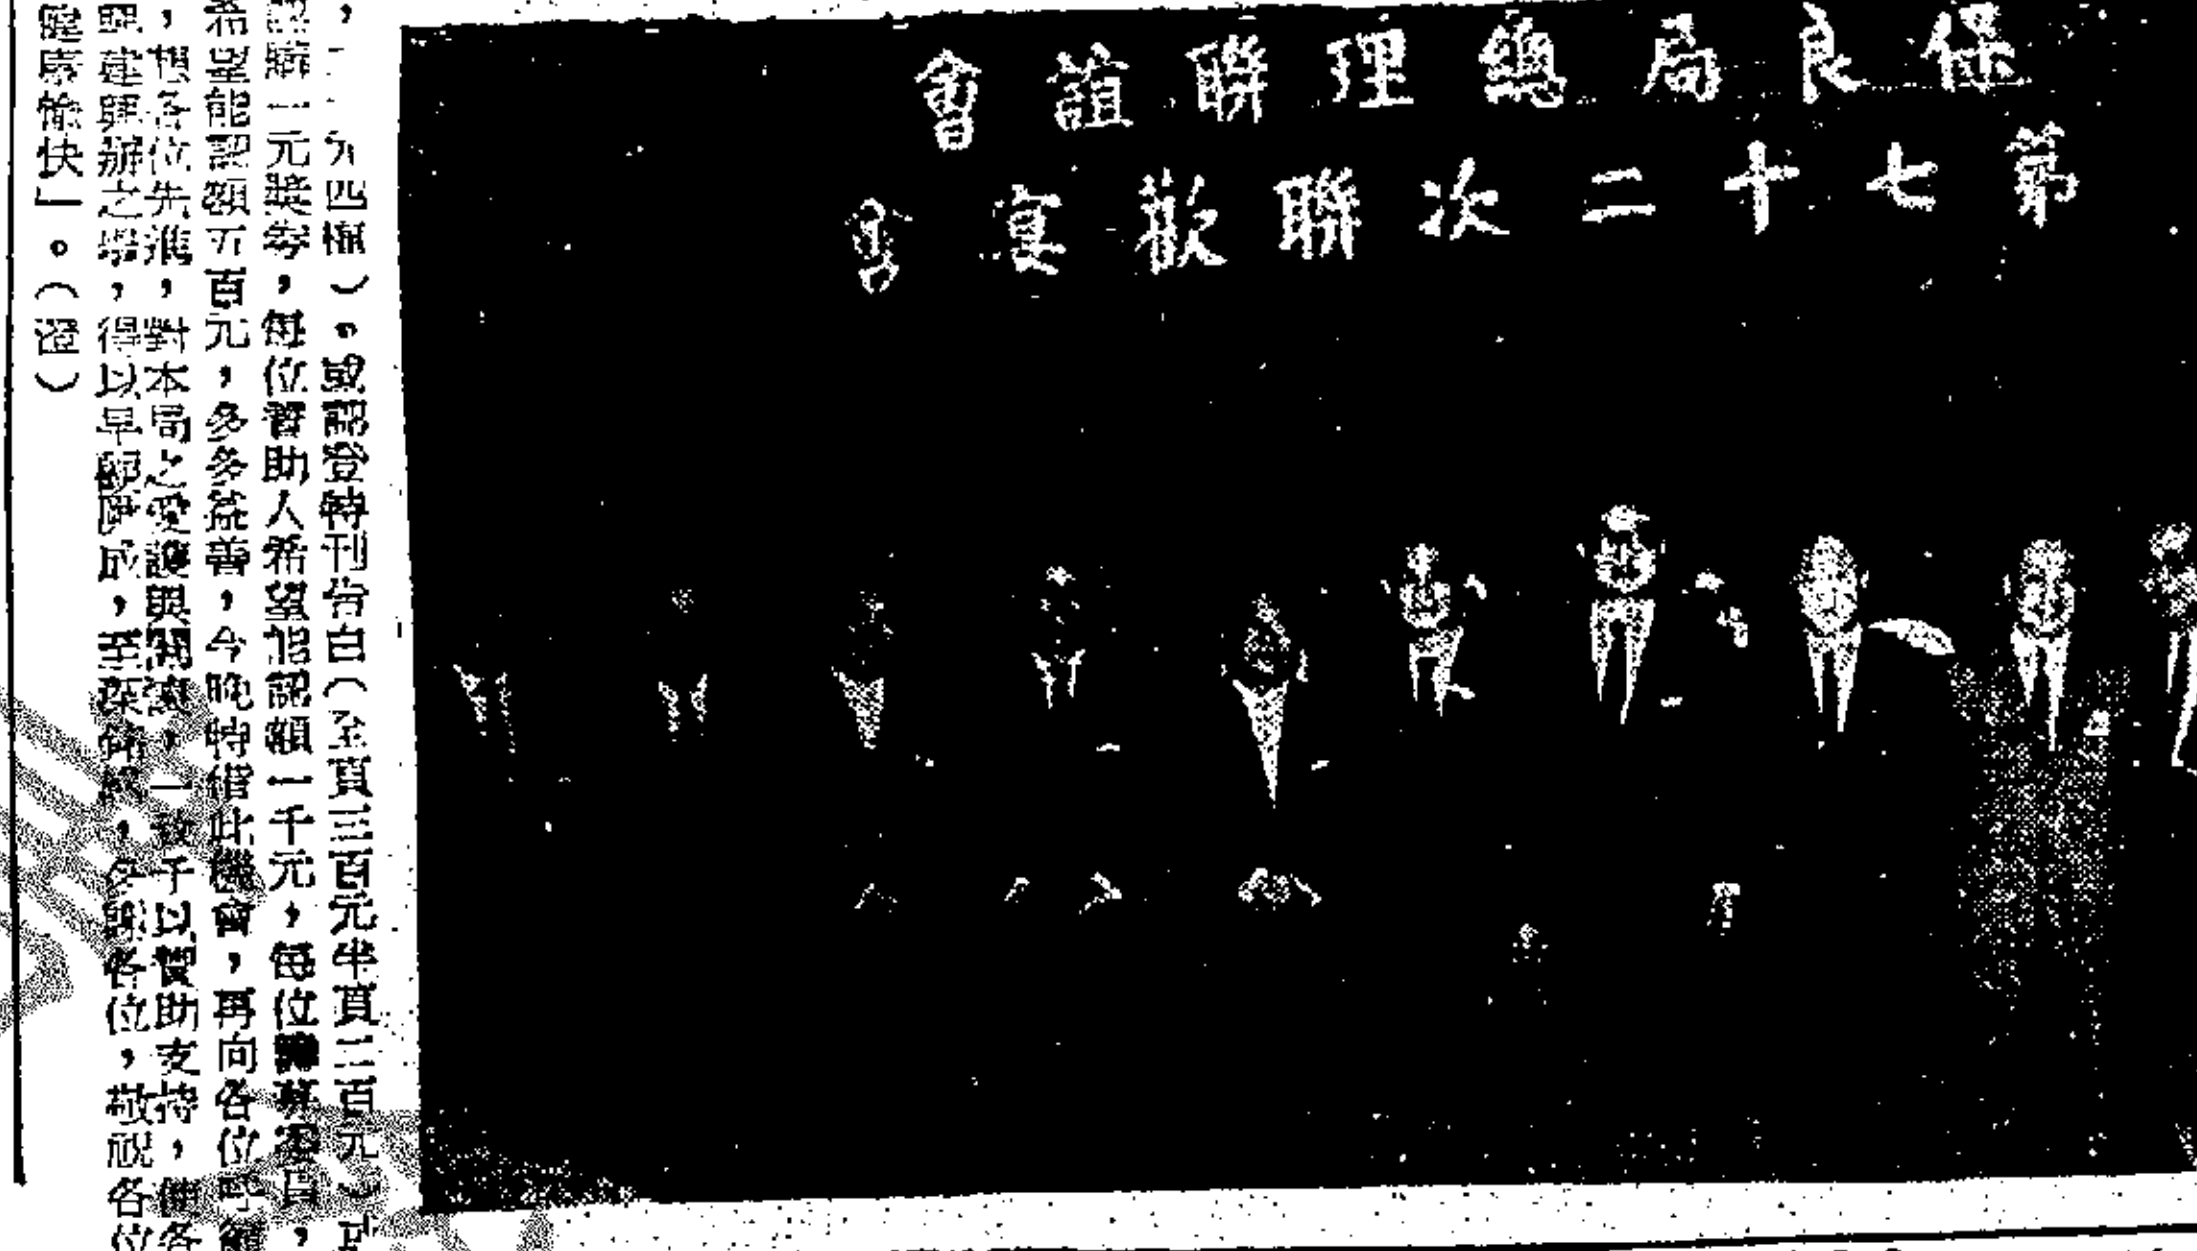 保良局總理聯誼會
第七十二次聯歡宴會
九四櫃)。或認登特刊告白(全頁三百元半頁二百元)或
認購一元獎券,每位贊助人希望能認額一千元,每位籌募委員,
希望能認額五百元,多多益善,今晚特借此機會,再向各位呼籲
,想各位先進,對本局之愛護與關懷,一致予以贊助支持,使各
興建興辦之舉,得以早觀厥成,至深銘感,多謝各位,敬祝各位
健康愉快」。(澄)